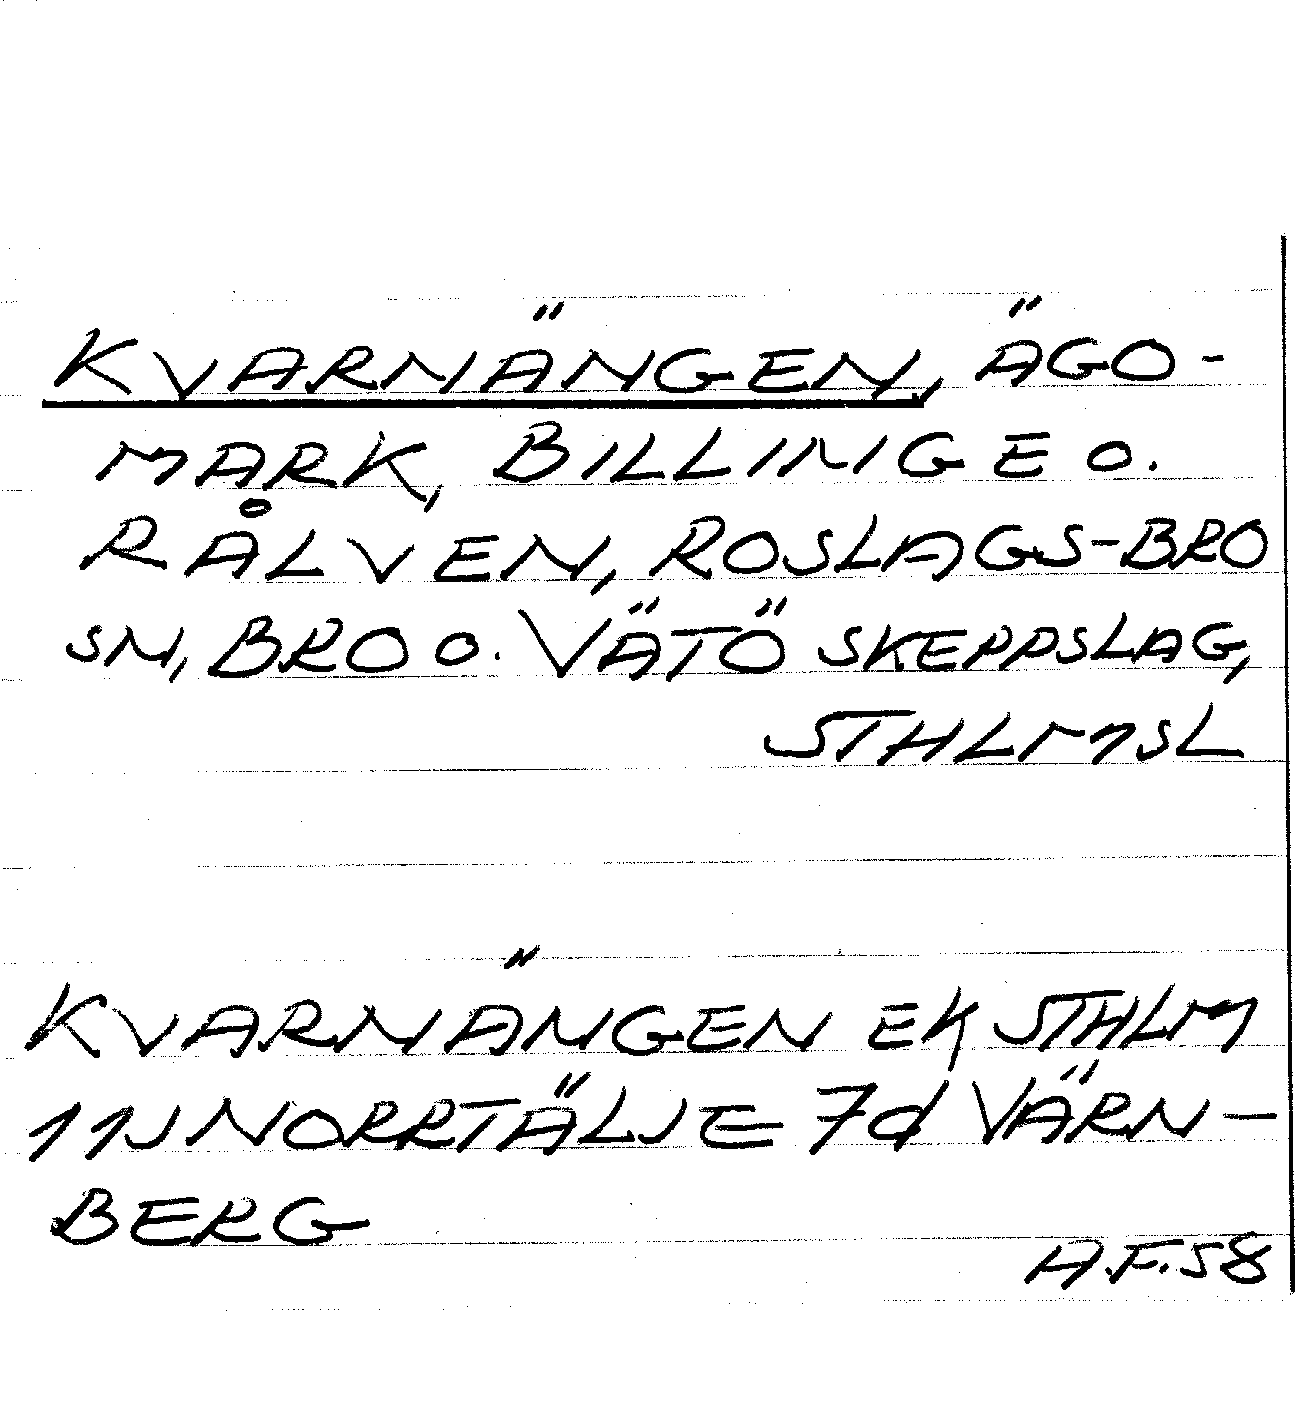 KVARNÄNGEN, ÄGO-
MARK, BILLINGE O.
RÅLVEN, ROSLAGS-BRO
SN, BRO O. VÄTÖ SKEPPSLAG,
STHLMSL
KVARNÄNGEN EK STHLM
11J NORRTÄLJE 7d VÄRN-
BERG
A.F.58